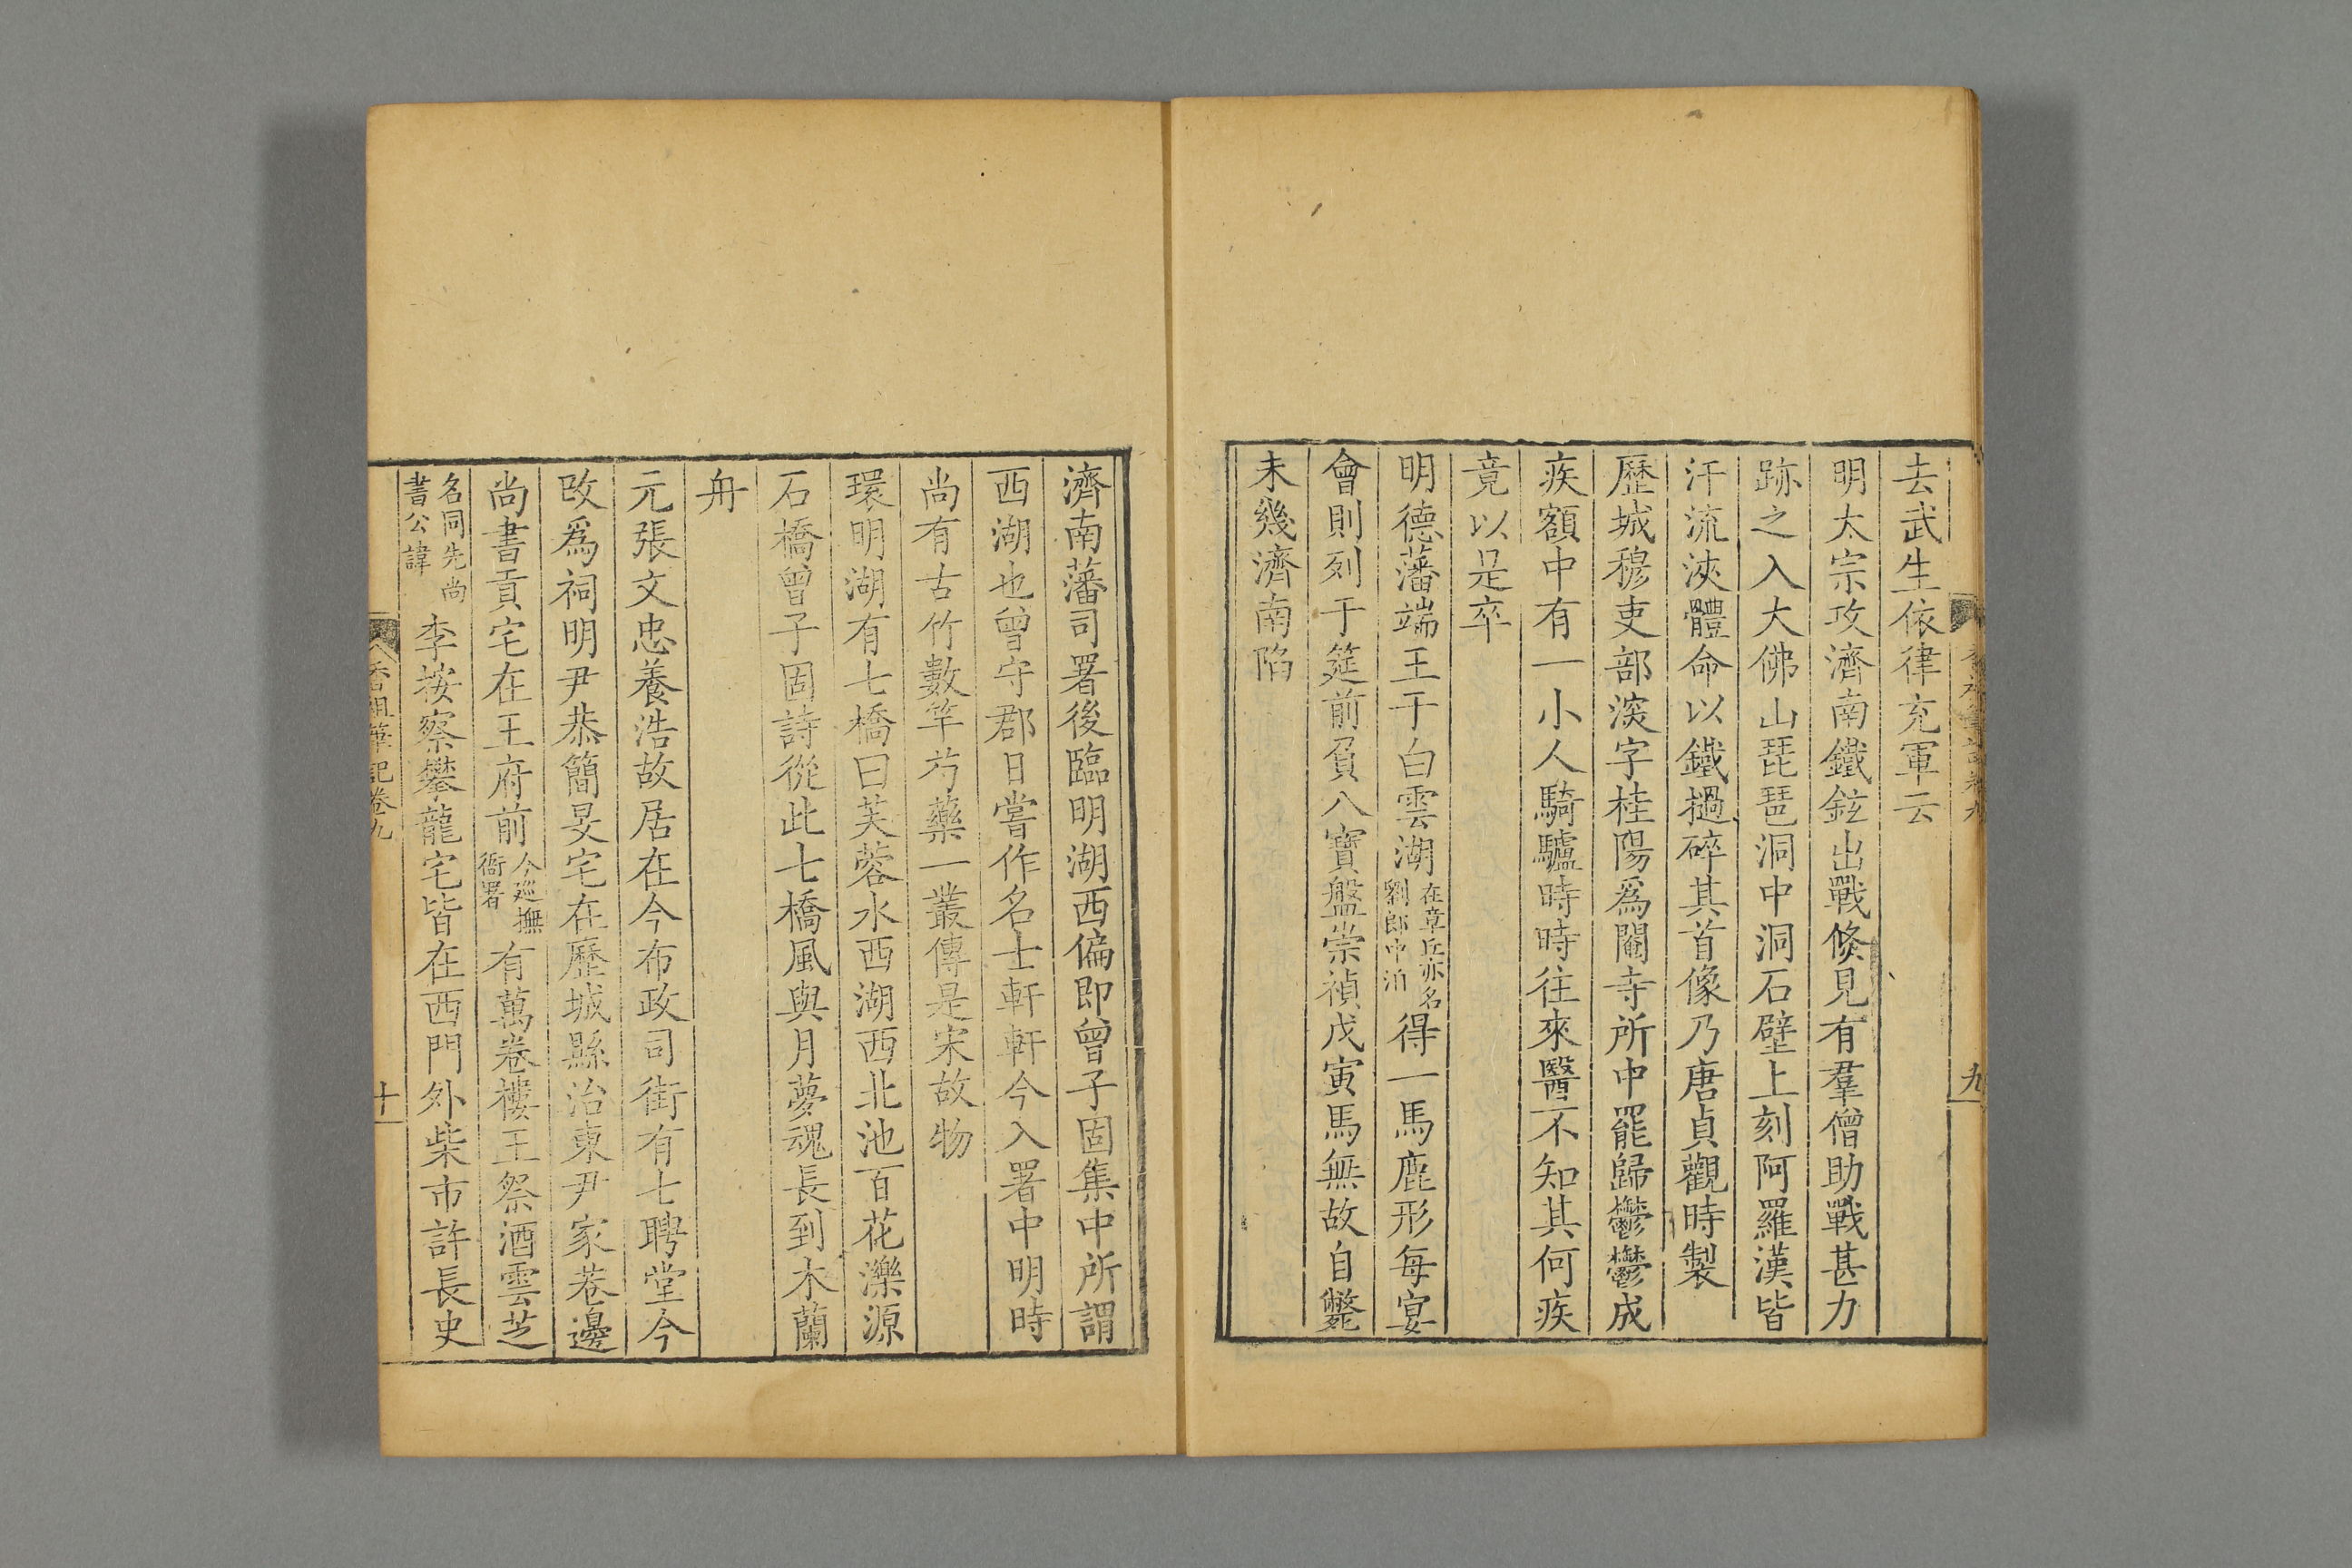 去武生依律充軍云
明太宗攻濟南鐵鉉出戰倏見有羣僧助戰甚力
跡之入大佛山琵琶洞中洞石壁上刻阿羅漢皆
汗流浹體命以鐵撾碎其首像乃唐貞觀時製
歷城穆吏部深字桂陽爲閹寺所中罷歸鬱鬱成
疾額中有一小人騎驢時時往來醫不知其何疾
竟以是卒
明德藩端王于白雲湖在章丘亦名劉郎中泊得一馬鹿形每宴
會則列于筵前負八寶盤崇禎戊寅馬無故自斃
未幾濟南陷
九
濟南藩司署後臨明湖西偏即曾子固集中所謂
西湖也曾守郡日嘗作名士軒軒今入署中明時
尚有古竹數竿芍藥一叢傳是宋故物
環明湖有七橋曰芙蓉水西湖西北池百花濼源
石橋曾子固詩從此七橋風與月夢魂長到木蘭
舟
元張文忠養浩故居在今布政司街有七聘堂今
改爲祠明尹恭簡旻宅在歷城縣治東尹家巷邊
尚書貢宅在王府前今巡撫衙署有萬卷樓王祭酒雲芝
名同先尚書公諱李按察攀龍宅皆在西門外柴市許長史
香祖筆記卷九
十